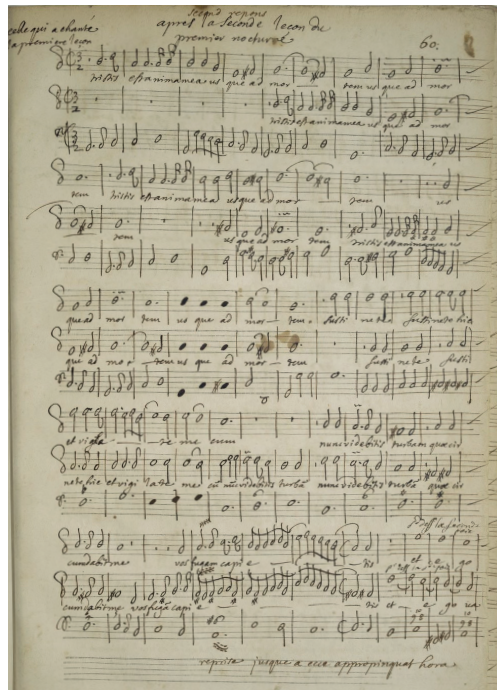 second repons
celle qui a chanté apres la seconde leçon du
la premiere leçon premier nocturne 60.
tristis est anima mea us que ad mor tem us que ad mor
tristis est anima mea us que ad mor
tem tristis est anima mea us que ad mor tem us
tem us que ad mor tem tristis est anima mea us
que ad mor tem us que ad mor tem. susti nete susti nete hic
que ad mor tem us que ad mor tem susti nete susti
et vigila te me cum nunc videbitis turbam quæ cir
nete hic et vigi la te me cū nunc videbitis turbā nunc videbitis turbā quæ cir
cumdabit me vos fugam capi e tis et e go
cumdabit me vos fugā capi e tis et e go va
reprise jusque a ecce appropinquat hora